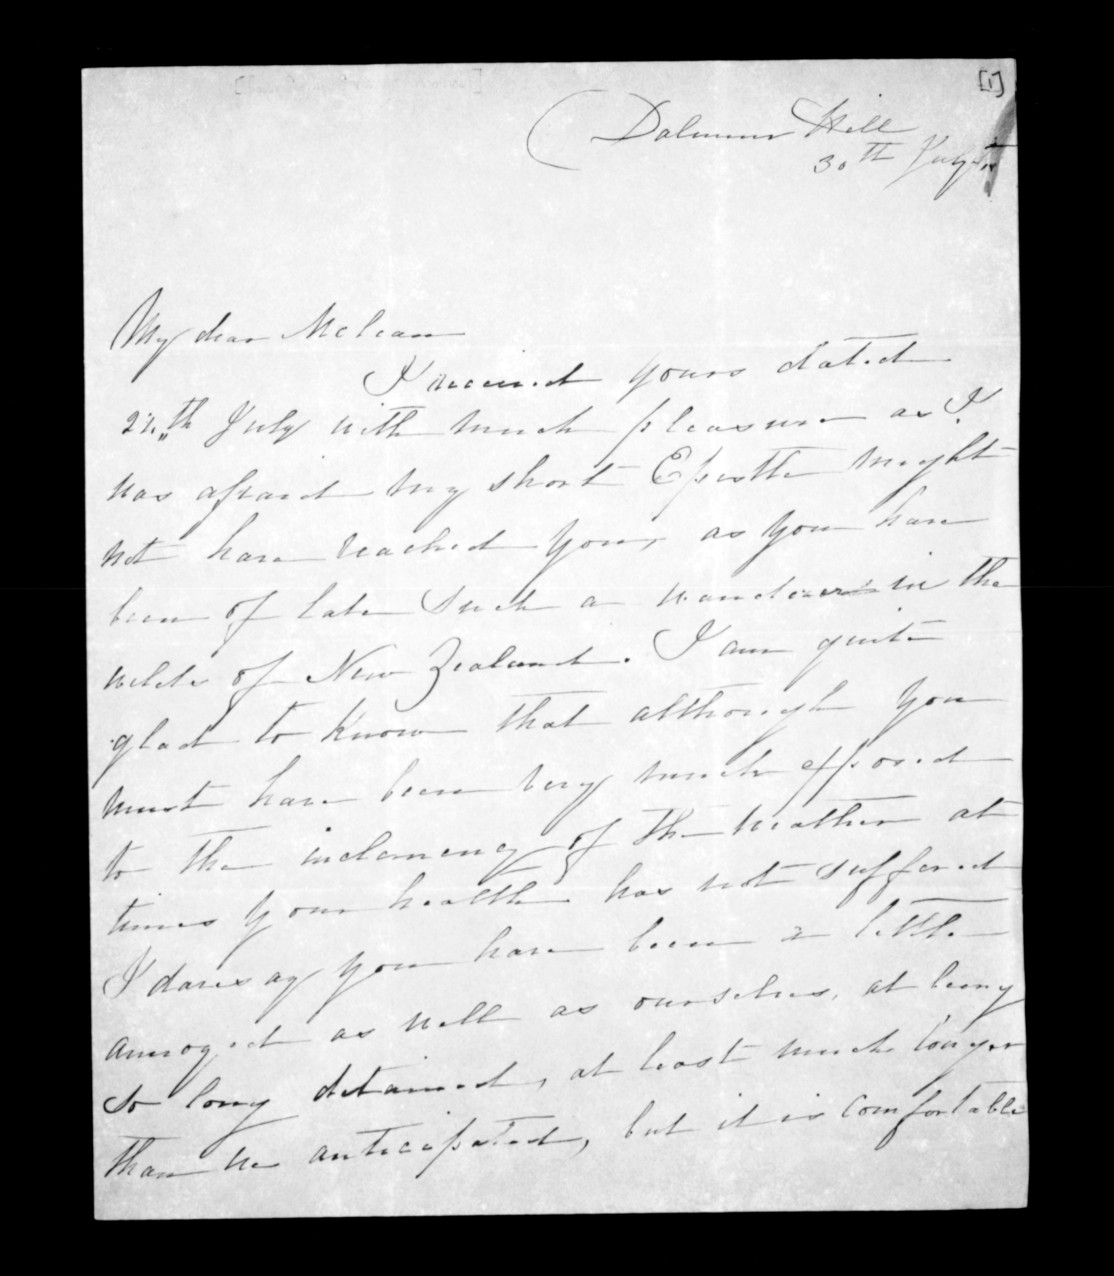 [1]
Hill
30th
My dear McLean
I received yours dated
July with much pleasure as I
was afraid my short Epistle might
not have reached you, as you have
been of late such a wanderer in the
wilds of New Zealand. I am quite
glad to know that although you
must have been very much exposed
to the inclemency of the weather at
times your health has not suffered
I daresay you have been a little
annoyed as well as ourselves, at being
so long detained, at least much longer
than we anticipated, but it is comfortable